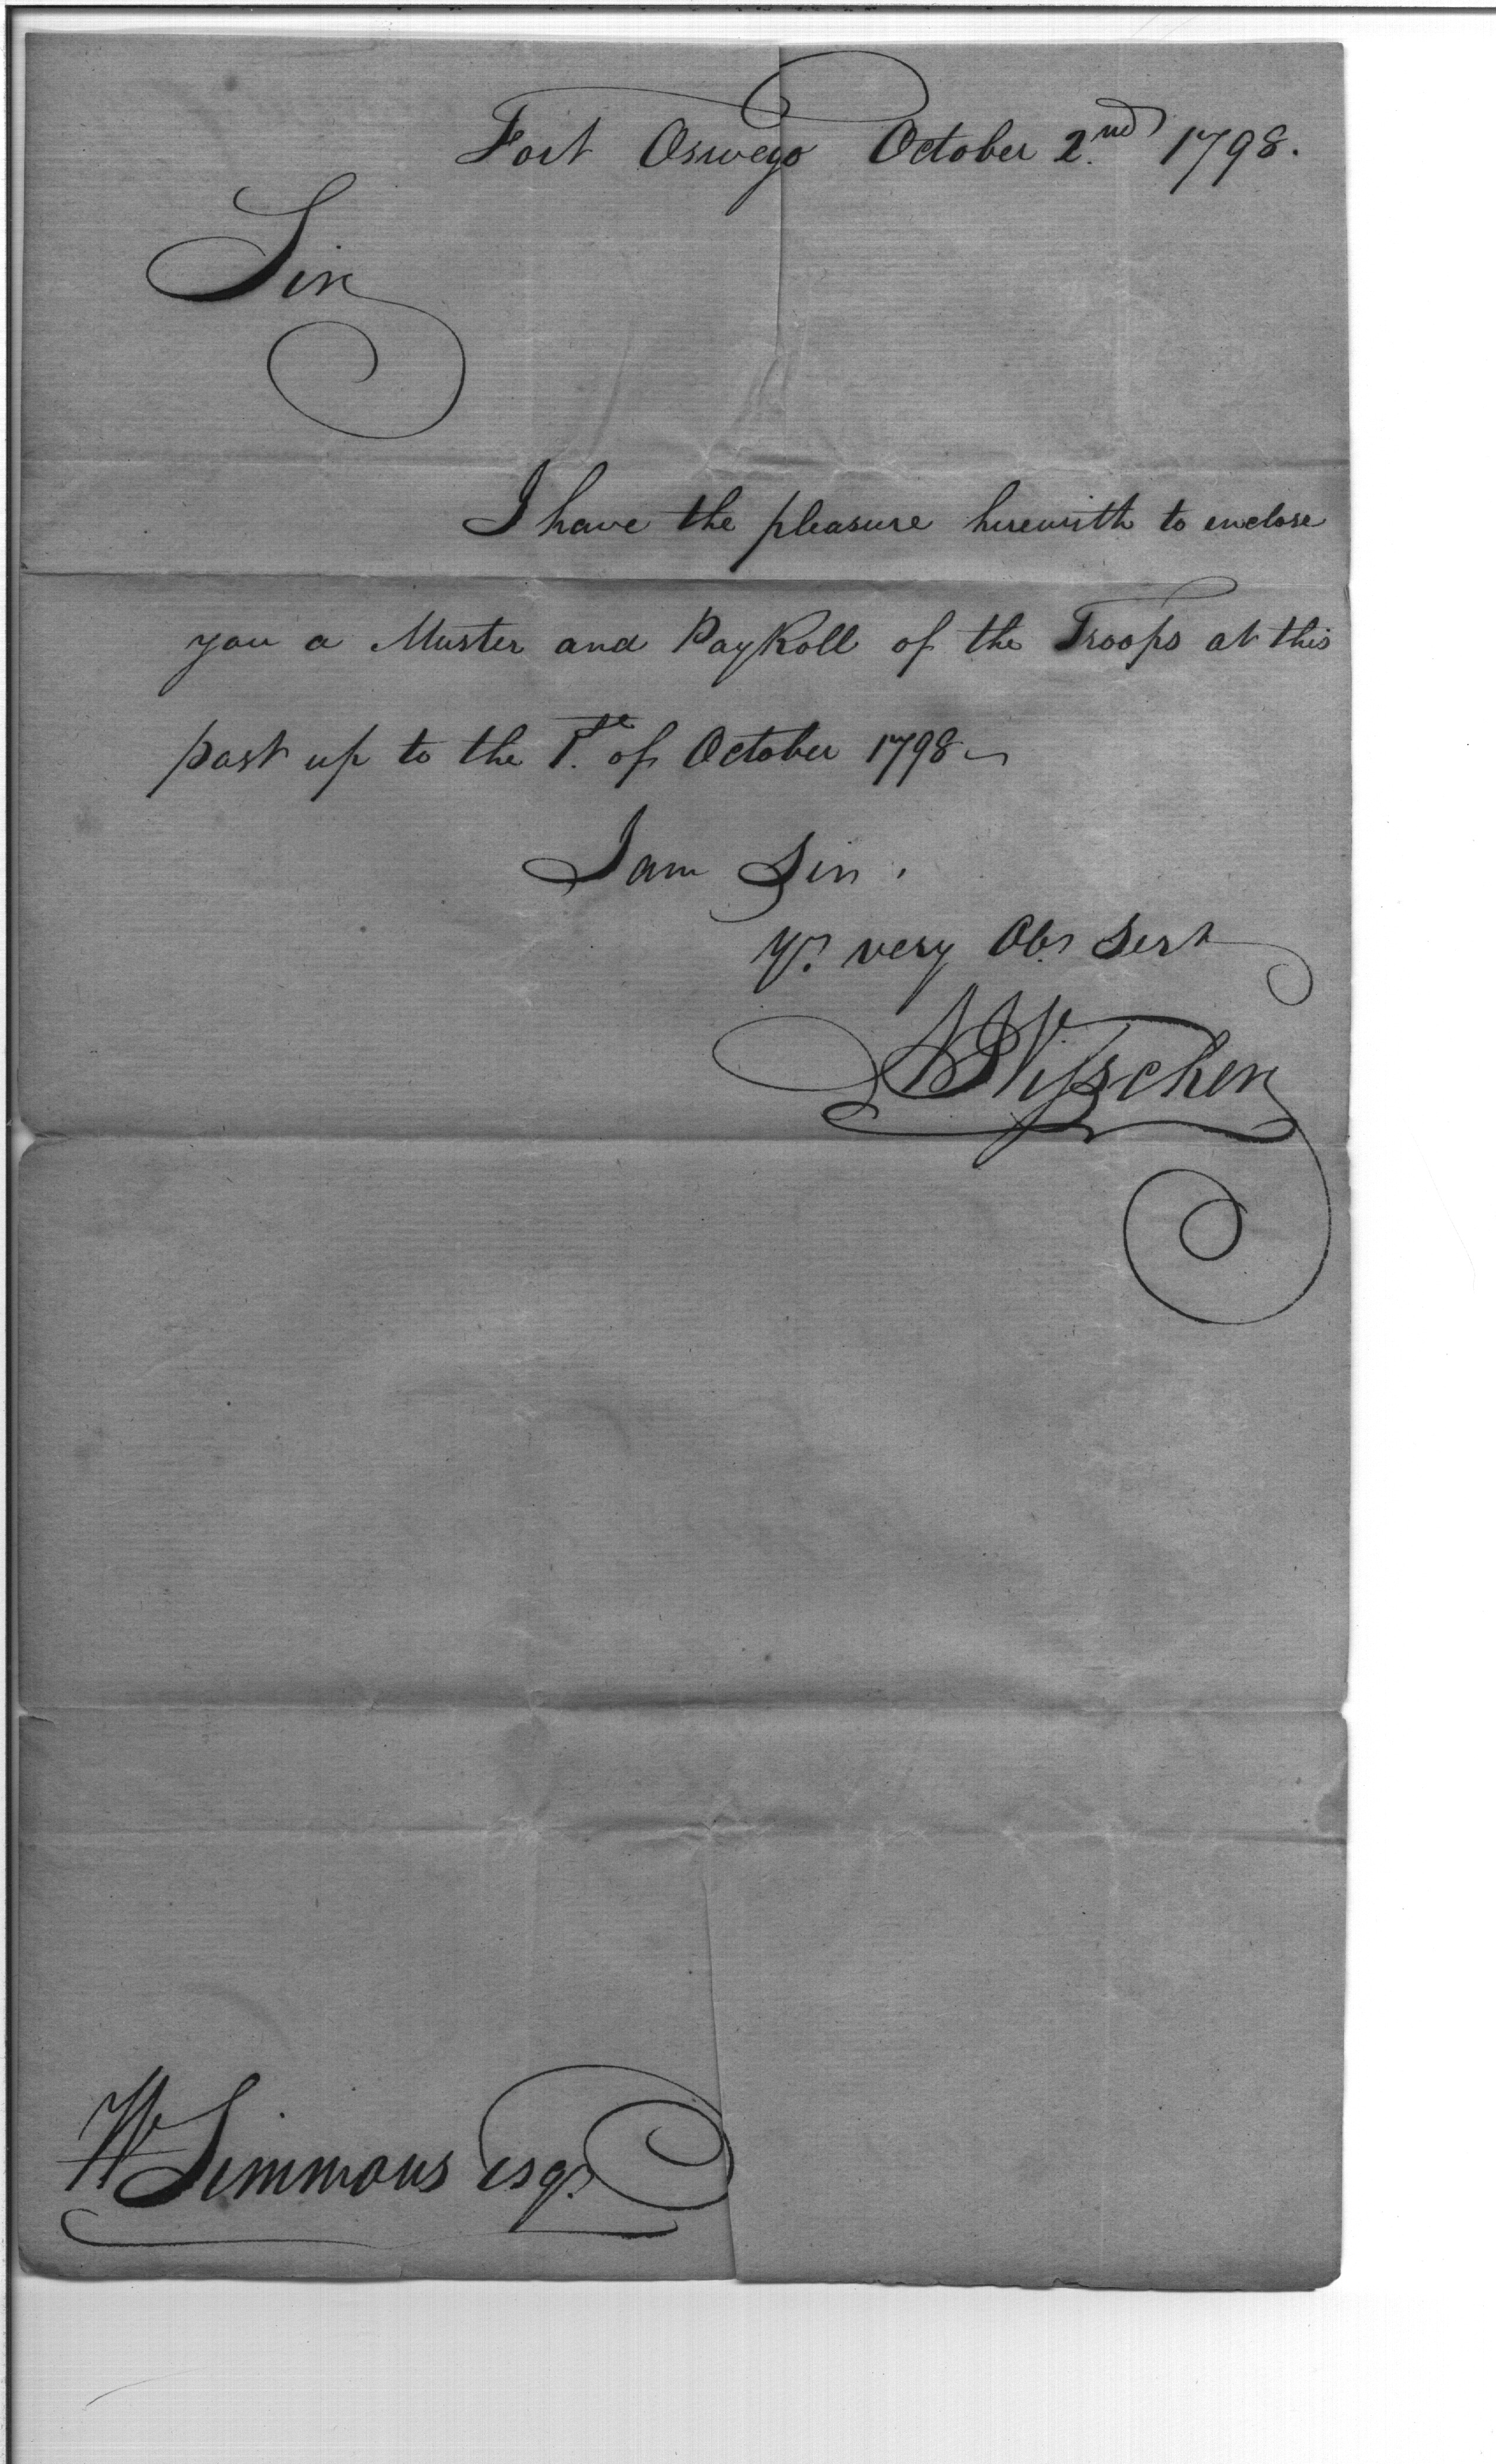 Fort Oswego October 2nd 1798.
Sir
I have the pleasure herewith to enclose
you a Muster and Pay Roll of the Troops at this
post up to the 1st. of October 1798
I am Sir.
Yr. very Obt Sert
N Visscher
W Simmons esqr.